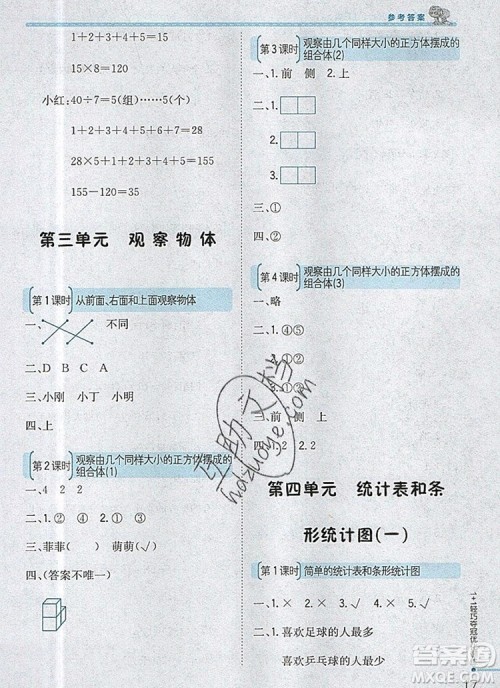 参考答案
1+2+3+4+5=15
15×8=120
小红:40÷7=5(组)……5(个)
1+2+3+4+5+6+7=28
28×5+1+2+3+4+5=155
155-120=35
第三单元 观察物体
第1课时 从前面、右面和上面观察物体
一、 不同
二、D B C A
三、小刚 小丁 小明
四、上
第2课时 观察由几个同样大小的正方体摆成的
组合体(1)
一、4 2 2
二、① ④ ② ③
三、菲菲( ) 萌萌(√)
四、(答案不唯一)
第3课时 观察由几个同样大小的正方体摆成的
组合体(2)
一、1.前 侧 2.上
二、1.
2.
3.
三、①
四、②
第4课时 观察由几个同样大小的正方体摆成的
组合体(3)
一、略
二、1.④⑤
2.①③
3.①②
三、前 侧 上
四、1.2 2.2
第四单元 统计表和条
形统计图(一)
第1课时 简单的统计表和条形统计图
一、1.× 2.× 3.× 4.√ 5.√
二、1.喜欢足球的人最多
喜欢乒乓球的人最少
1+1轻巧夺冠优
17
助文
hdzuoye.com
作业帮答案
MXQE.COM